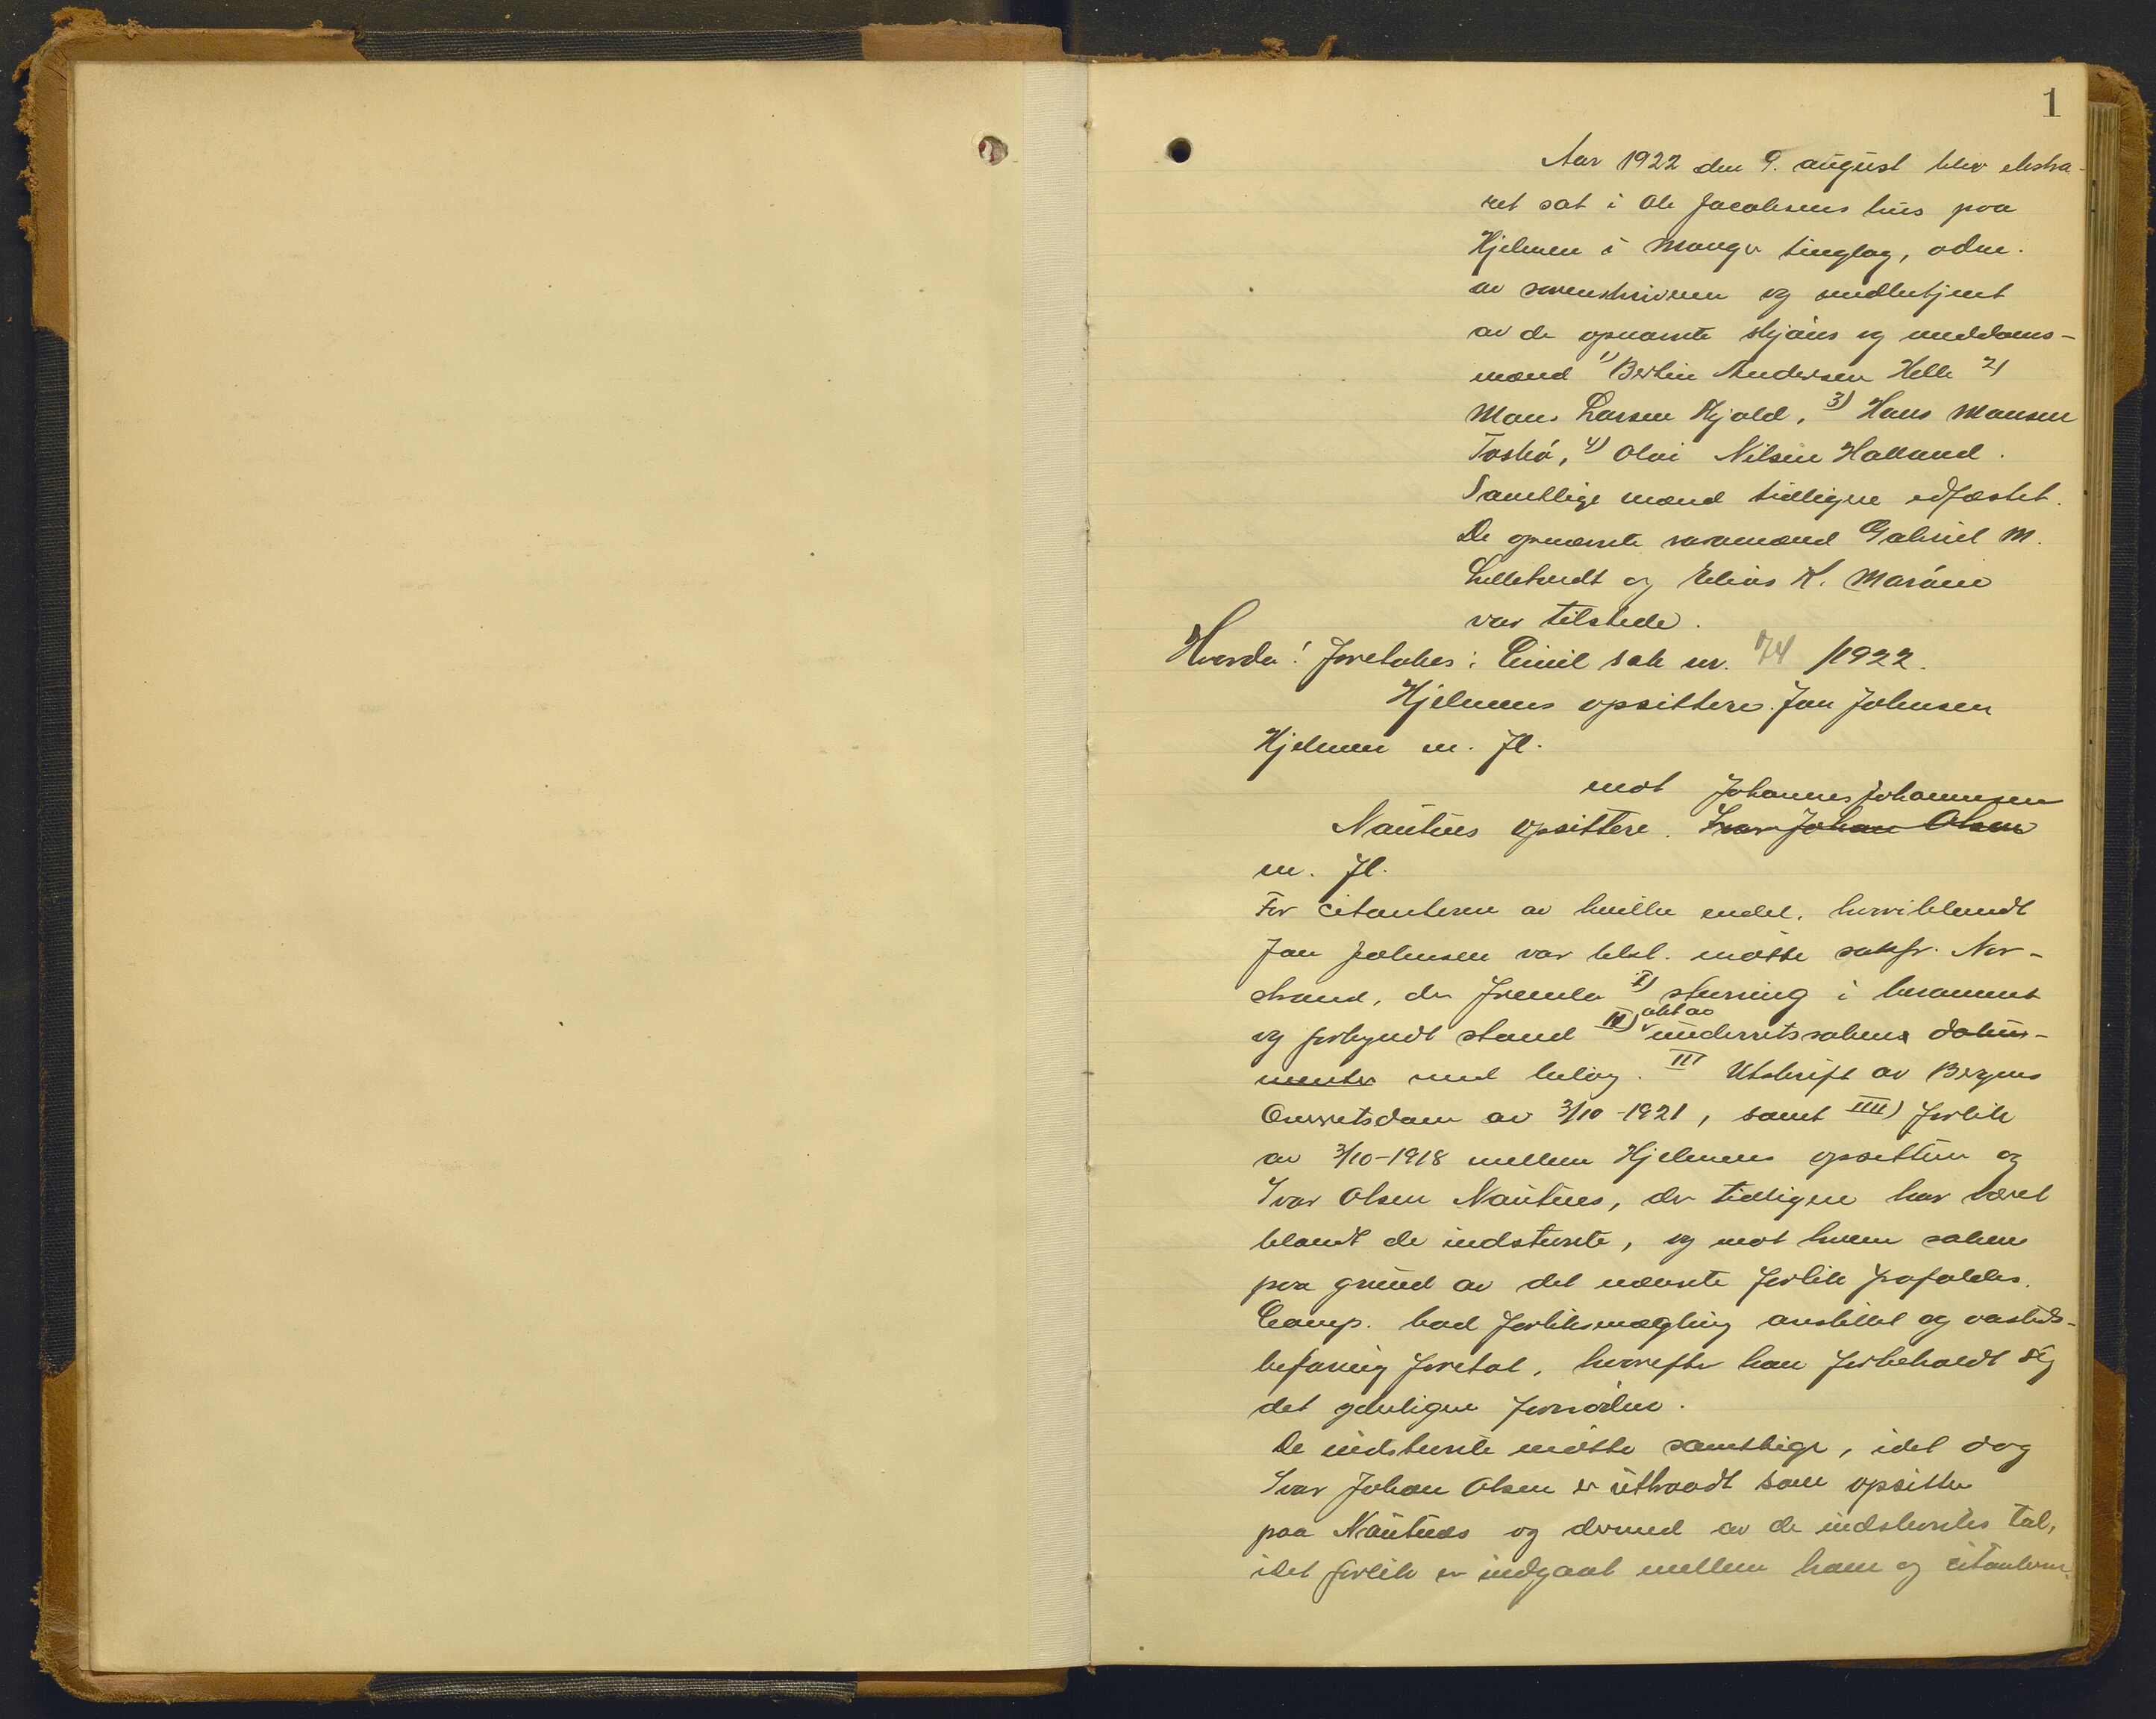 1
Aar 1922 den 9. august blev ekstra-
ret sat i Ole Jacobsens hus paa
Hjelmen i Manger tinglag, adm.
av sorenskriveren og medbetjent
av de opnævnte skjöns og meddoms-
mænd 1) Bertin Andersen Helle 2)
Mons Larsen Kjold, 3) Hans Monsen
Toskö, 4) Olai Nilsen Halland.
Samtlige mænd tidligere edfæstet.
De opnævnte varamænd Gabriel M.
Lilletvedt og Elias K. Maröen
var tilstede.
Hvorda! Foretokes: Civil sak nr. 74/1922.
Hjelmens opsittere. Jan Johnsen
Hjelmen m. fl.
mot Johannes Johannesen
Nautnes opsittere. Ivar Johan Olsen
m. fl.
For citanterne av hvilke endel, hvoriblandt
Jan Johnsen var tilst. mötte sakfr. Nor-
strand, der fremla I) stevning i berammet
og forkyndt stand II) akt av underretssakens doku-
menter med bilag. III Utskrift av Bergens
Overretsdom av 3/10-1921, samt IIII) Forlik
av 3/10-1918 mellem Hjelmens opsittere og
Ivar Olsen Nautnes, der tidligere har været
blandt de indstevnte, og mot hvem saken
paa grund av det nævnte forlik frafaldes.
Comp. bad forliksmægling anstillet og aasteds-
befaring foretat, hvorefter han forbeholdt sig
det yderligere fornödne.
De indstevnte mötte samtlige, idet dog
Ivar Johan Olsen er uttraadt som opsitter
paa Nautnes og dermed av de indstevntes tal,
idet forlik er indgaat mellem ham og citanterne.